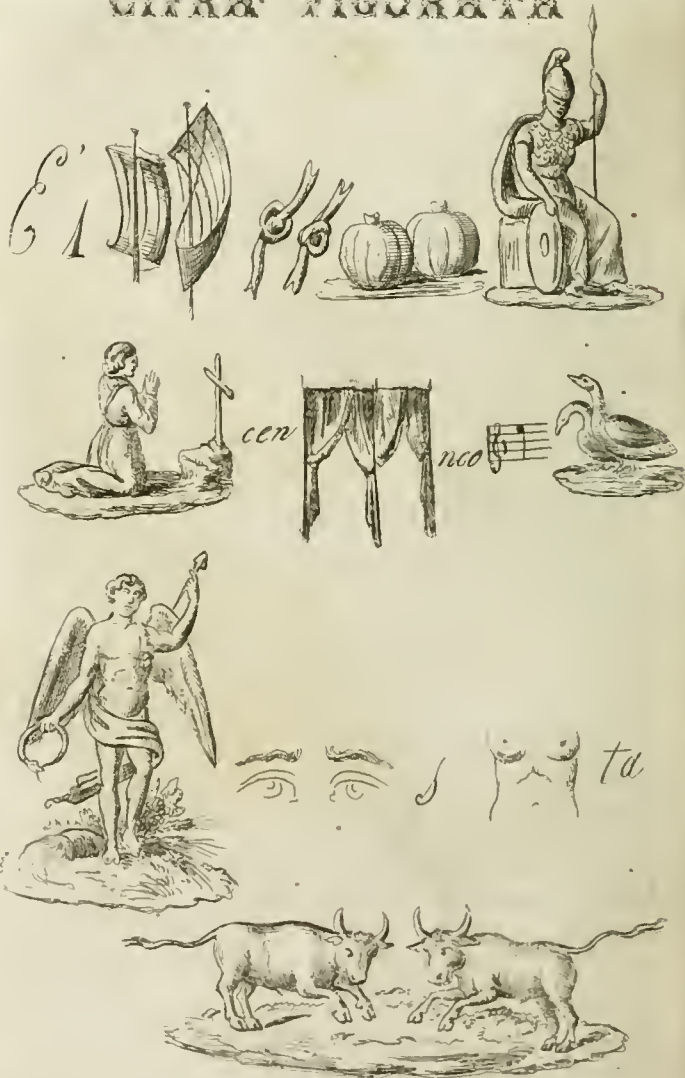 CIFRA FIGURATA
E' 1
cen nco
ta